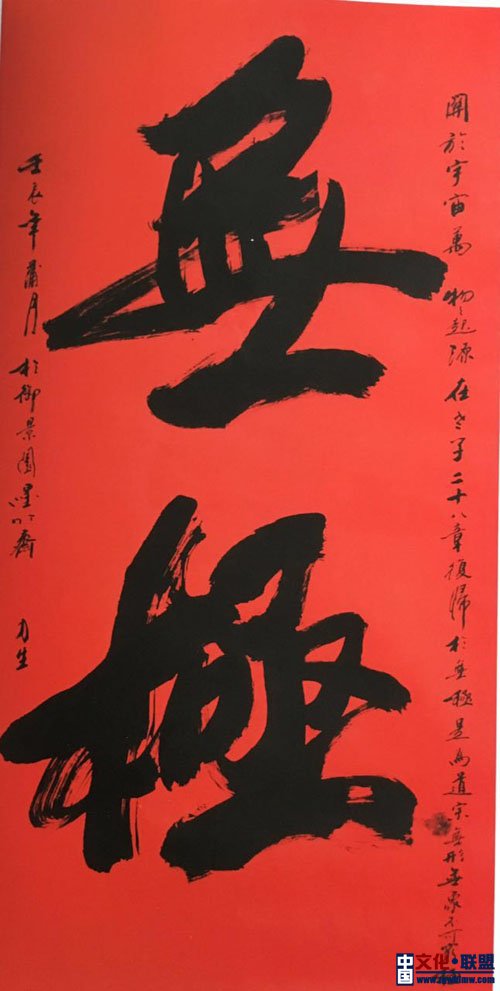 無極
關於宇宙萬物起源在老子二十八章復歸於無極是為道宗無形無象不可
壬辰年蒲月於御景園墨心齋 力生
中国文化·联盟